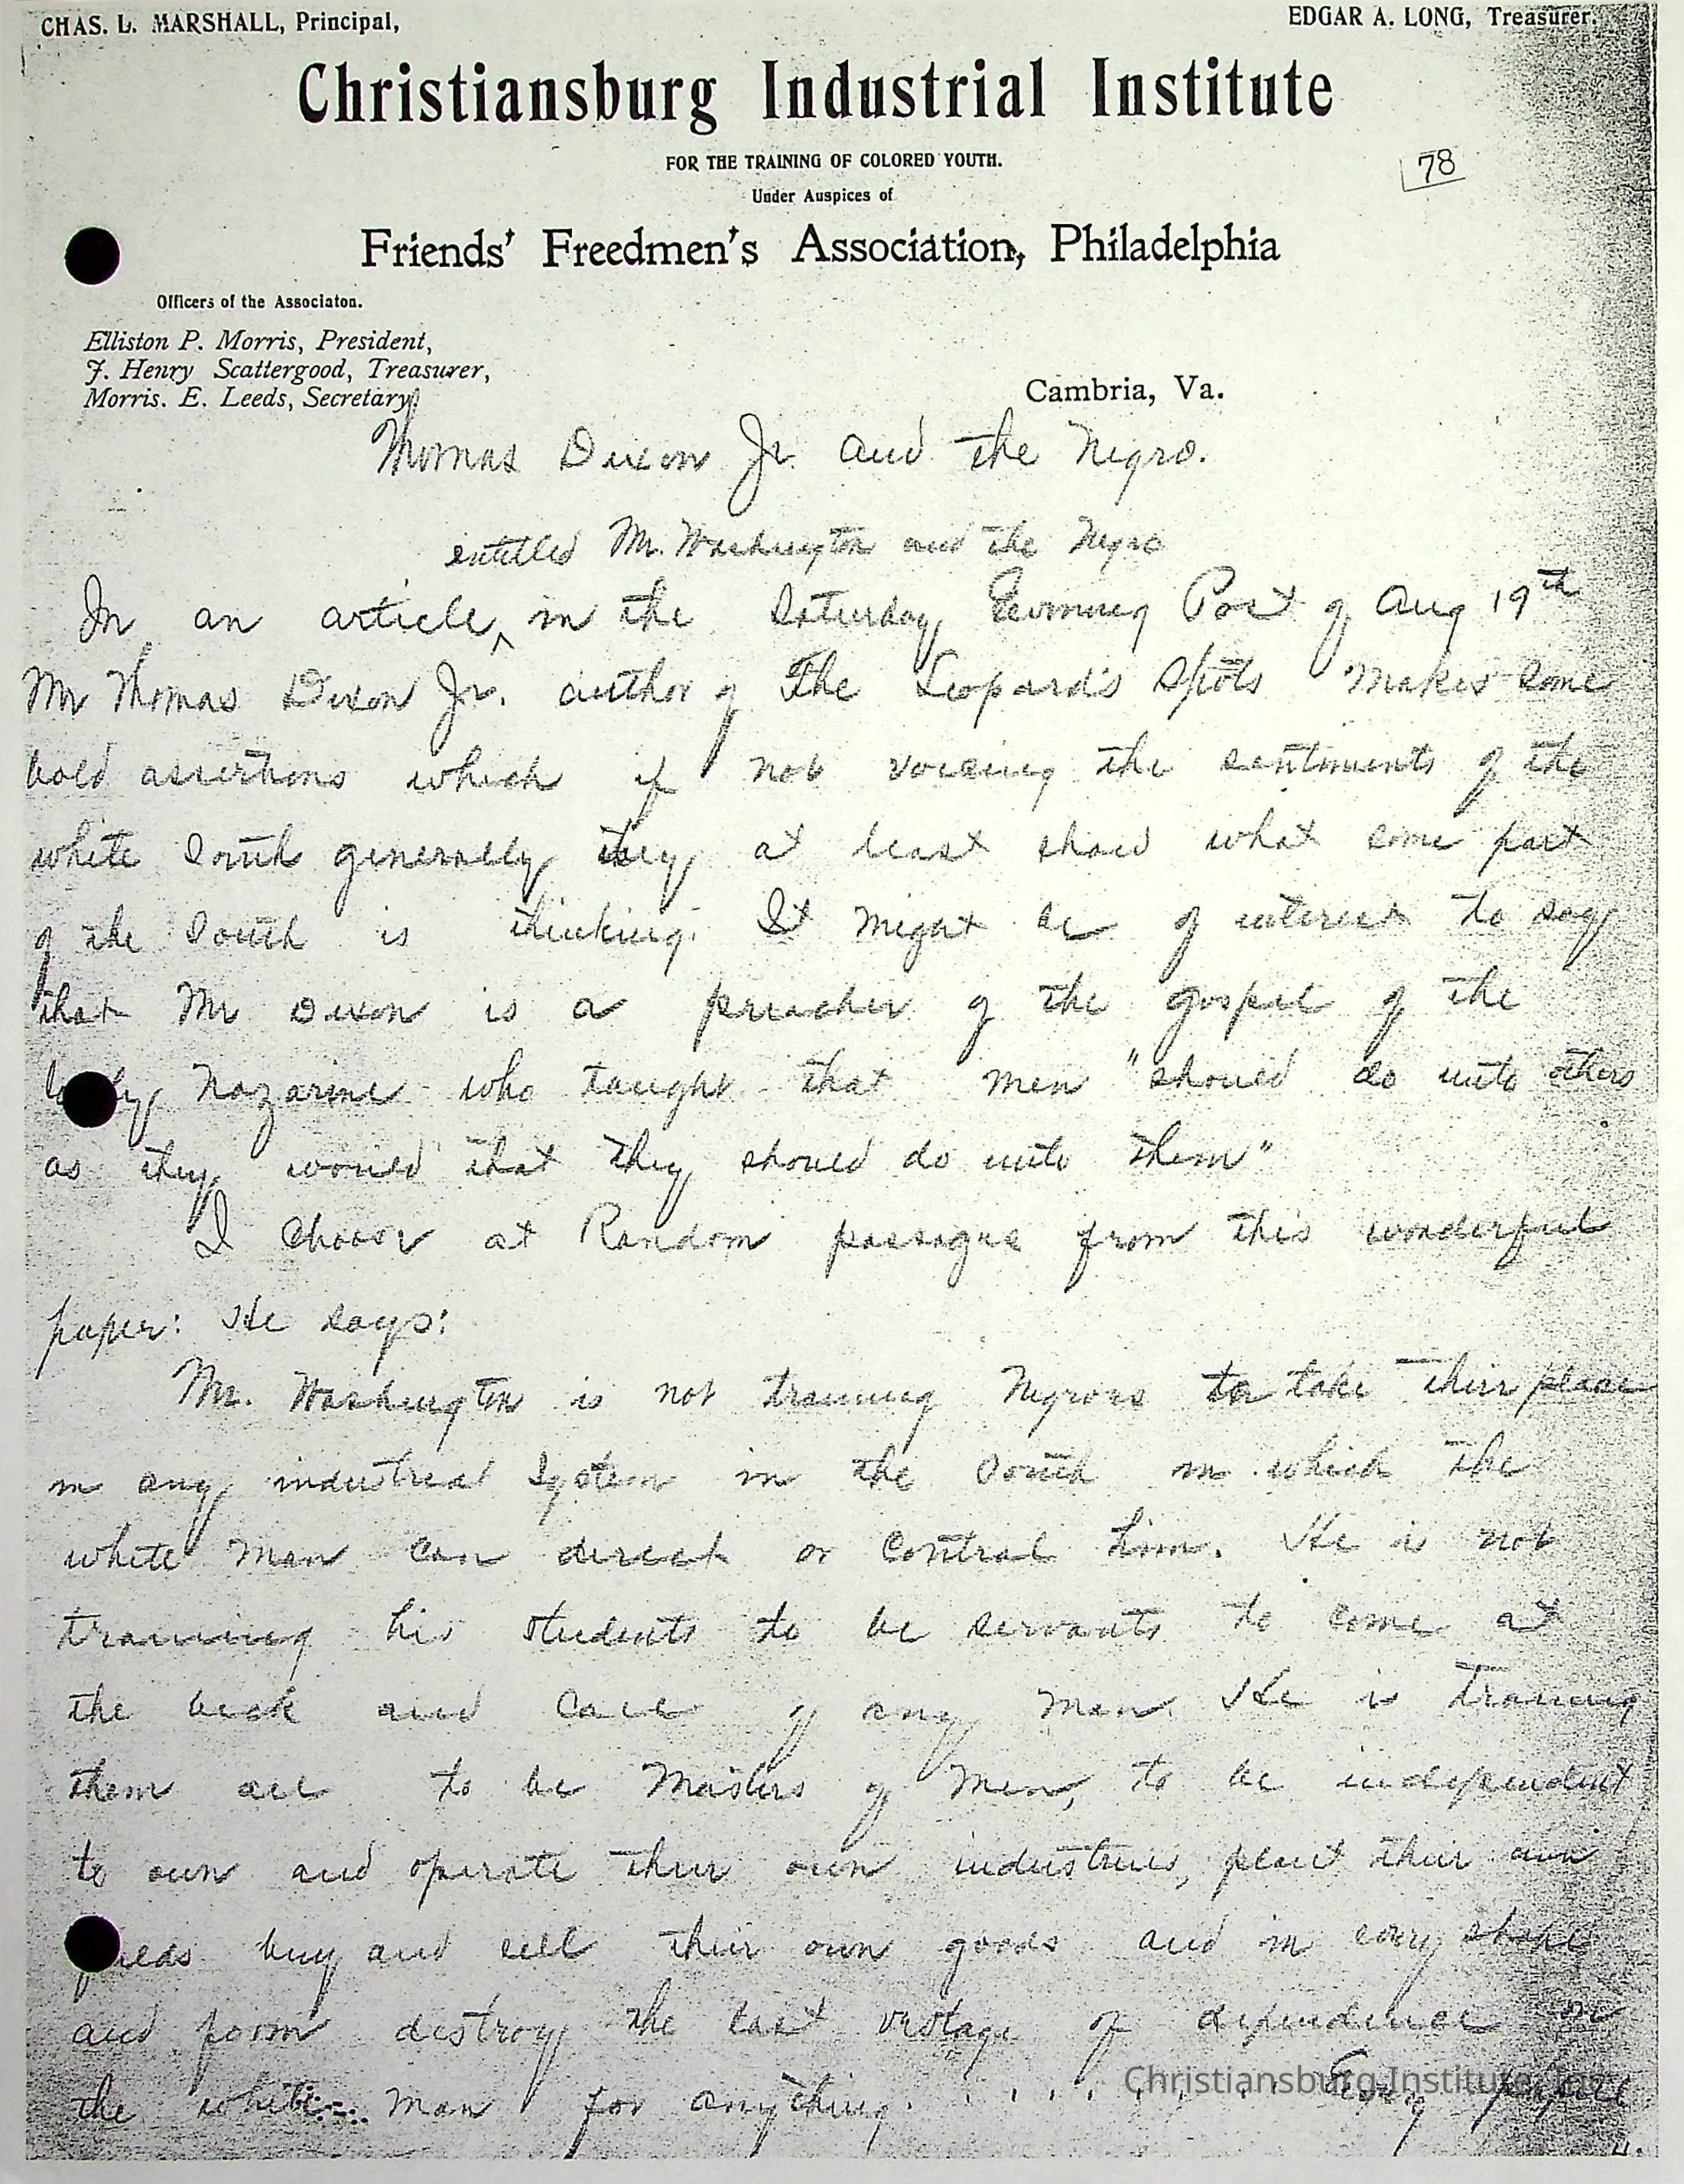 CHAS. L. MARSHALL, Principal,
EDGAR A. LONG, Treasurer.
Christiansburg Industrial Institute
FOR THE TRAINING OF COLORED YOUTH.
78
Under Auspices of
Friends' Freedmen's Association, Philadelphia
Officers of the Associaton.
Elliston P. Morris, President,
J. Henry Scattergood, Treasurer,
Morris. E. Leeds, Secretary
Cambria, Va.
Thomas Dixon Jr. and the Negro.
entitled Mr. Washington and the Negro
In an article ^ in the Saturday Evening Post of Aug 19th
Mr Thomas Dixon Jr. author of The Leopard's Spots makes some
bold assertions which if not voicing the sentiments of the
white South generally they at least show what some part
of the South is thinking. It might be of interest to say
that Mr Dixon is a preacher of the gospel of the
Nazarine who taught that men "should do unto others
as they would that they should do unto them"
I choose at Random passages from this wonderful
paper: He says:
Mr. Washington is not training Negroes to take their place
in any industrial System in the South in which the
white man can direct or control him. He is not
training his students to be servants to come at
the beck and call of any man. He is training
them all to be Masters of Men, to be independent
to own and operate their own industries, plant their own
fields buy and sell their own goods and in every shape
and form destroy the last vestage of dependence on
the white man for anything. . . . . . . Every
Christiansburg Institute, Inc.